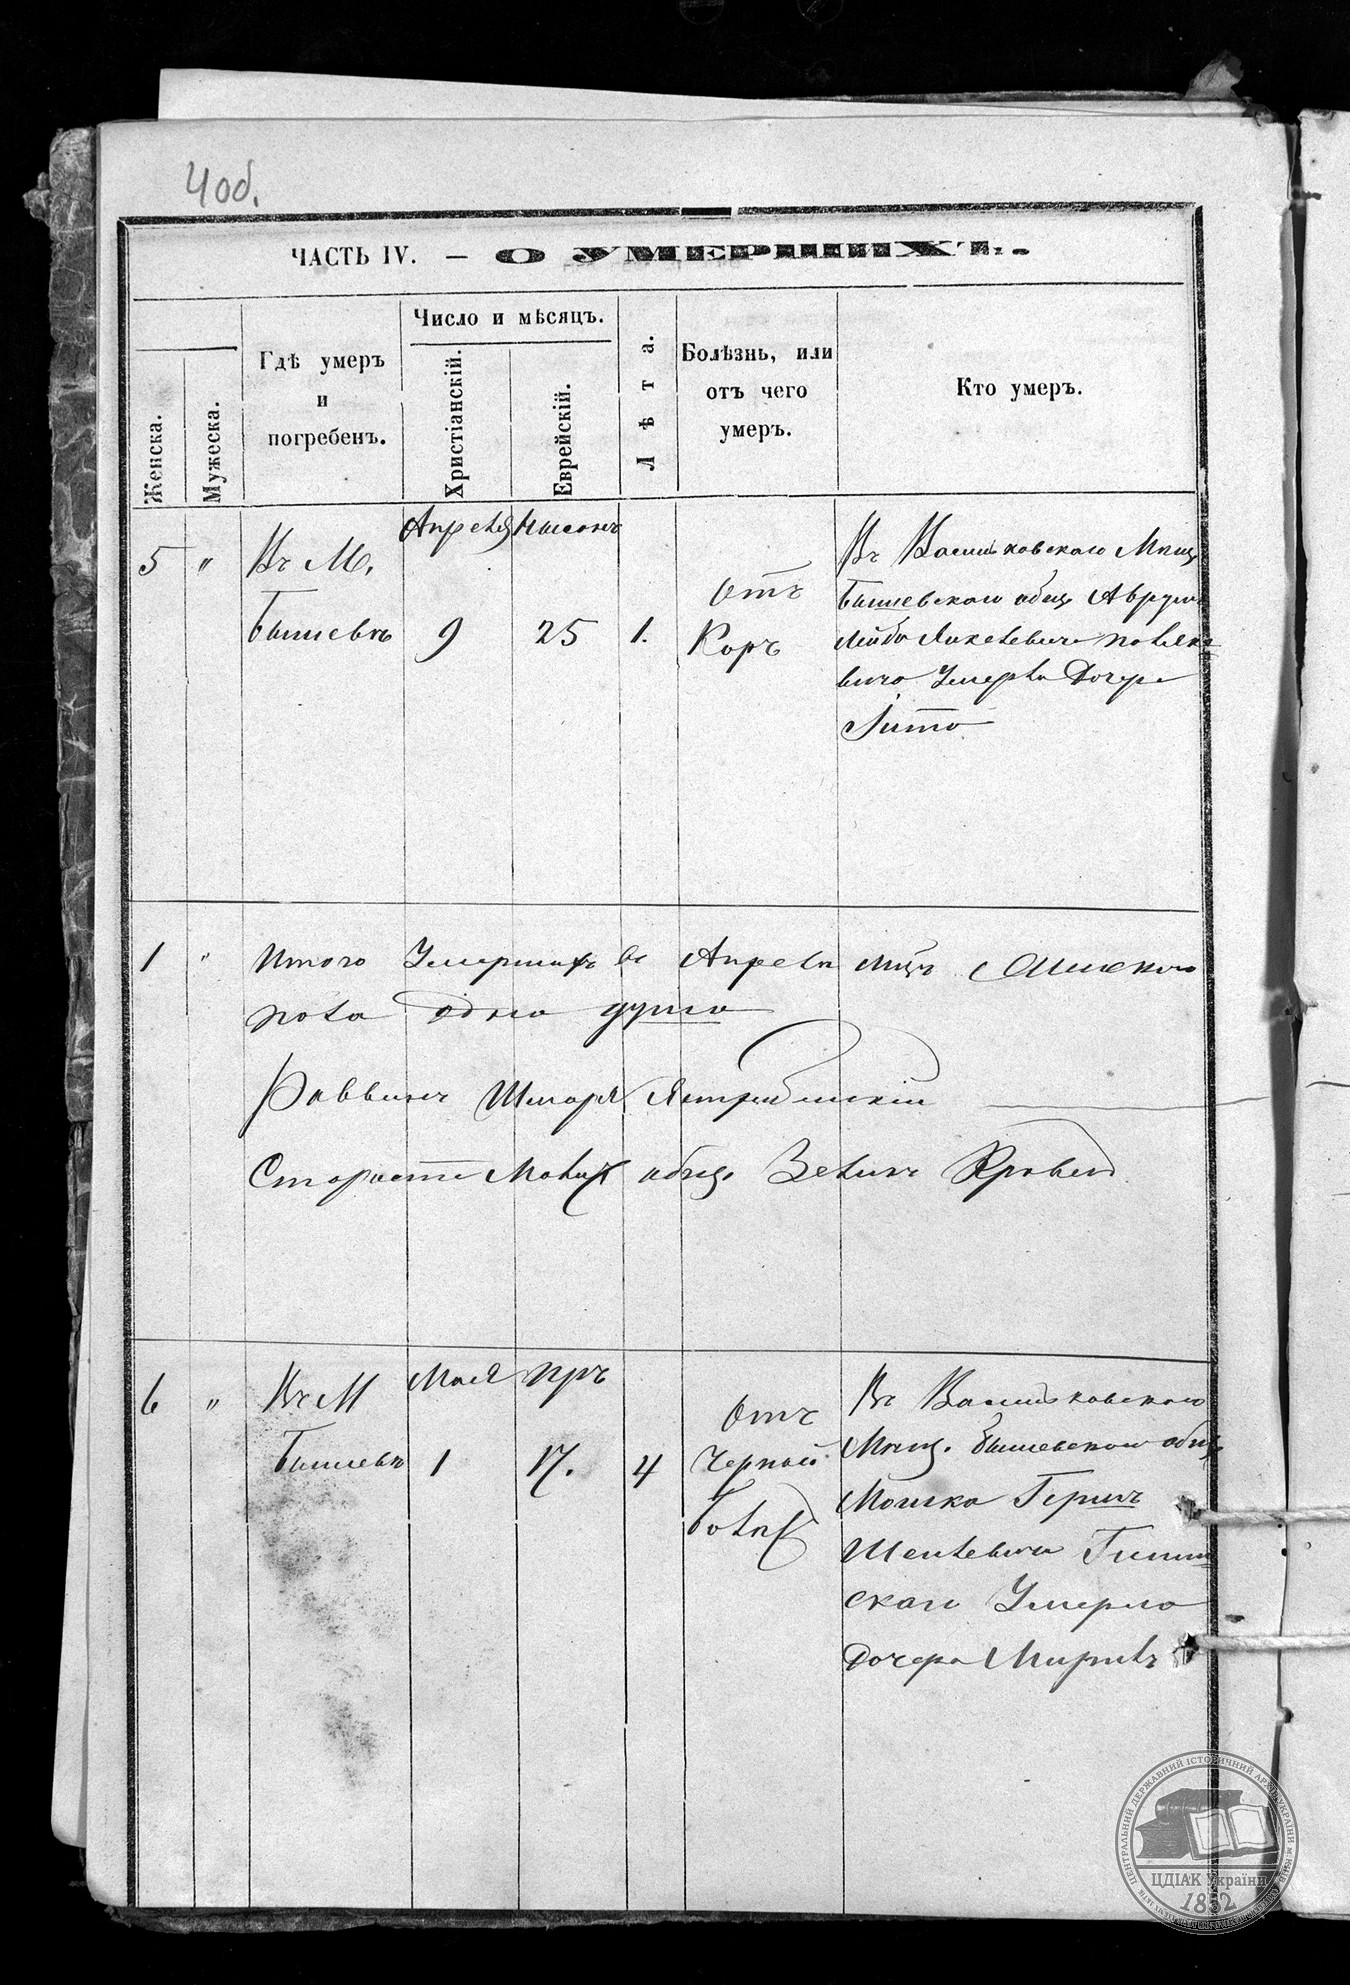 4 об.
ЧАСТЬ IV. — О УМЕРШИХЪ.
Женска.
Мужеска.
Гдѣ умеръ
и
погребенъ.
Число и мѣсяцъ.
Христіанскій.
Еврейскій.
Лѣта.
Болѣзнь, или
отъ чего
умеръ.
Кто умеръ.
Апреля Нисонъ
5 " Въ М.
Бышевѣ 9 25 1.
Отъ
Коръ
Въ Васильковского Мѣщ
Бышевского общ Аврумъ
Лейба
вича Умерла Дочерь
1 " Итого Умершихъ въ Апрелѣ мцѣ Женского
пола одна душа
Раввинъ Шмаря
Староста Молит общ Зельмъ
6 " Въ М Мая Іиръ
Бышевѣ 1 17. 4
Отъ
Черной
Болѣз
Въ Васильковского
Мѣщ. Бышевского общ.
Мошка Гершъ
ского Умерла
Дочерь
ЦЕНТРАЛЬНИЙ ДЕРЖАВНИЙ ІСТОРИЧНИЙ АРХІВ УКРАЇНИ м. КИЇВ
ЦДІАК України
1852